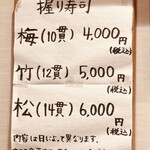 握り寿司
梅(10貫) 4,000円(税込)
竹(12貫) 5,000円(税込)
松(14貫) 6,000円(税込)
内容は日によって異なります。